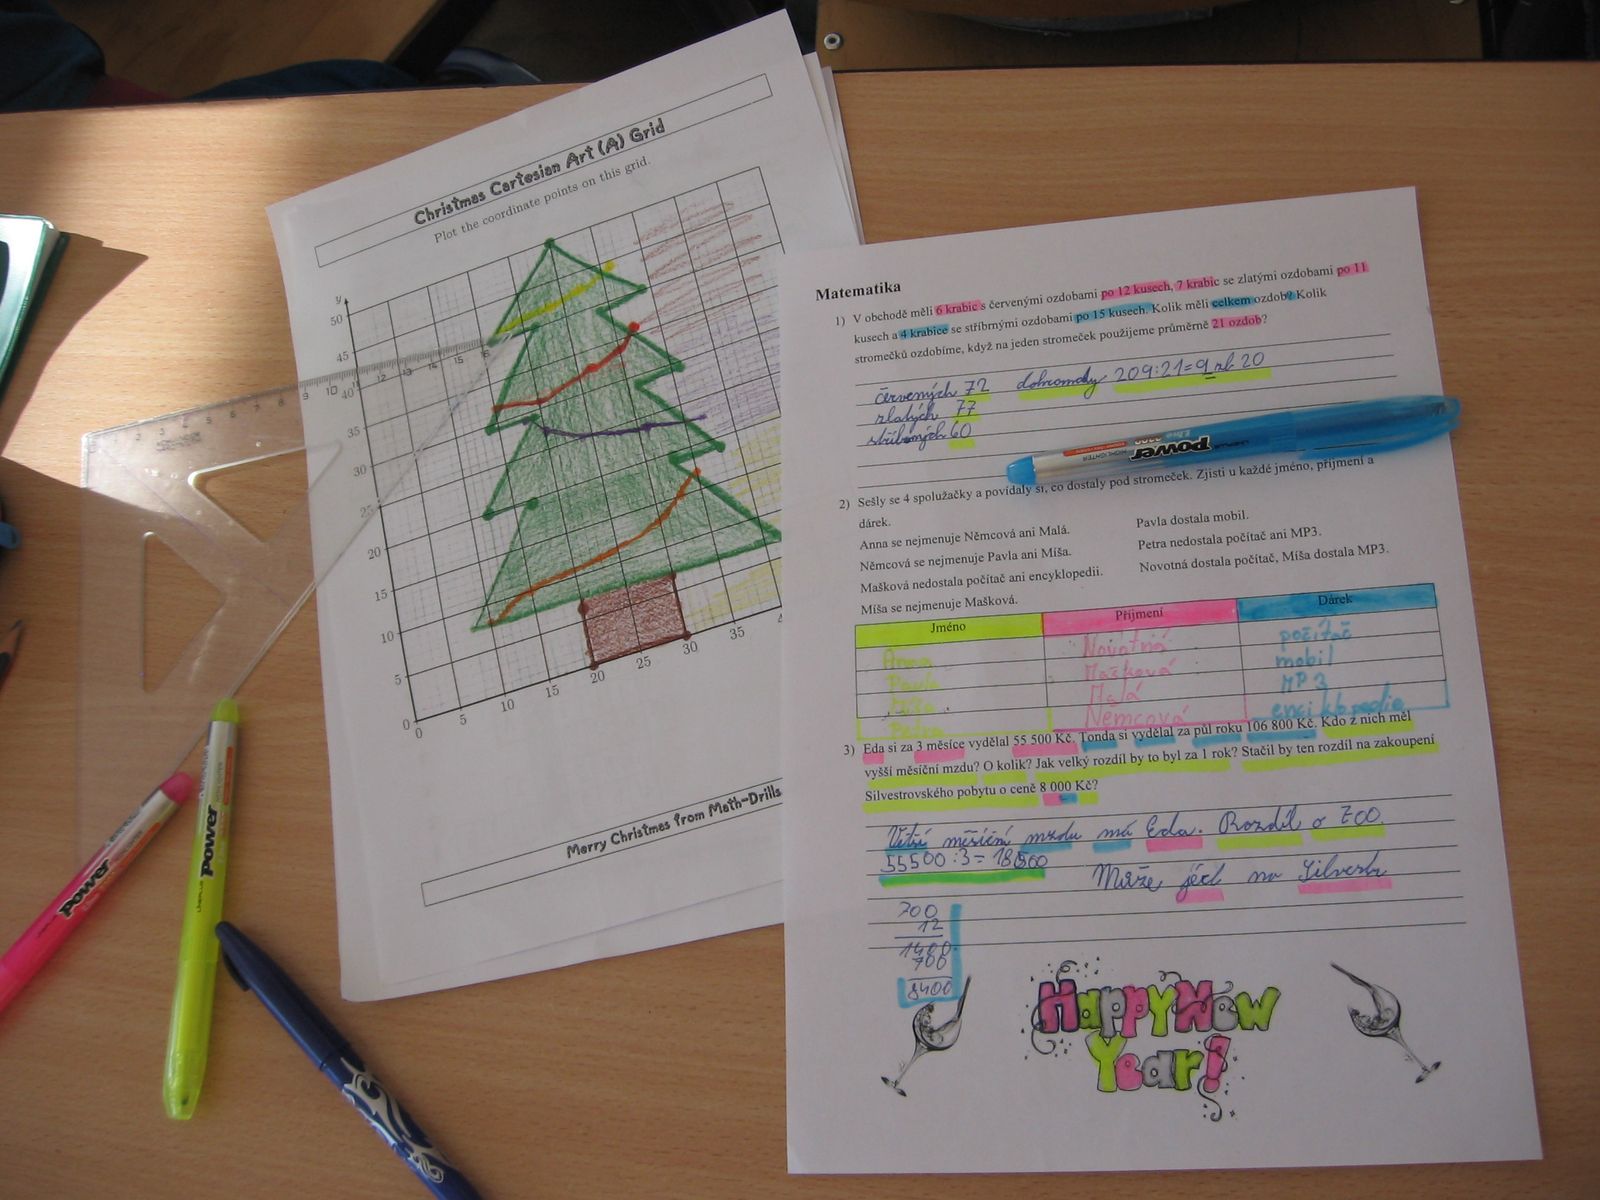 Christmas Cartesian Art (A) Grid
Plot the coordinate points on this grid.
y
50
45
40
35
30
25
20
15
10
5
0
0 5 10 15 20 25 30 35
Merry Christmas from Math-Drills
Matematika
1) V obchodě měli 6 krabic s červenými ozdobami po 12 kusech, 7 krabic se zlatými ozdobami po 11
kusech a 4 krabice se stříbrnými ozdobami po 15 kusech. Kolik měli celkem ozdob? Kolik
stromečků ozdobíme, když na jeden stromeček použijeme průměrně 21 ozdob?
červených 72 dohromady 209:21=9 zb. 20
zlatých 77
stříbrných 60
power
2) Sešly se 4 spolužačky a povídaly si, co dostaly pod stromeček. Zjisti u každé jméno, příjmení a
dárek.
Anna se nejmenuje Němcová ani Malá.
Němcová se nejmenuje Pavla ani Míša.
Mašková nedostala počítač ani encyklopedii.
Míša se nejmenuje Mašková.
Pavla dostala mobil.
Petra nedostala počítač ani MP3.
Novotná dostala počítač, Míša dostala MP3.
Jméno Příjmení Dárek
Anna Novotná počítač
Pavla Mašková mobil
Míša Malá MP3
Petra Němcová
3) Eda si za 3 měsíce vydělal 55 500 Kč. Tonda si vydělal za půl roku 106 800 Kč. Kdo z nich měl
vyšší měsíční mzdu? O kolik? Jak velký rozdíl by to byl za 1 rok? Stačil by ten rozdíl na zakoupení
Silvestrovského pobytu o ceně 8 000 Kč?
Větší měsíční mzdu má Eda. Rozdíl o 700.
55500:3=18500
Může jet na Silvestr
700
12
1400
700
8400
Happy New
Year!
power
power